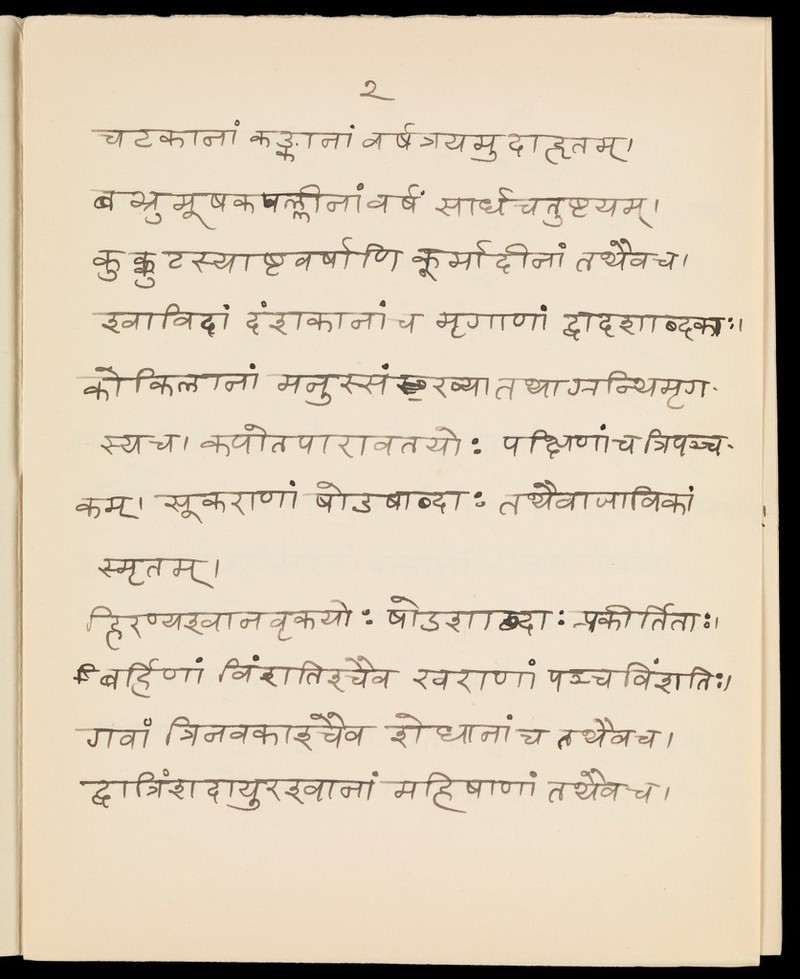 २
चटकानां कङ्कानां वर्षत्रयमुदाहृतम्।
बभ्रुमूषकपल्लीनां वर्षं सार्धचतुष्टयम्।
कुक्कुटस्याष्टवर्षाणि कूर्मादीनां तथैवच।
श्वाविदां दंशकानांच मृगाणां द्वादशाब्दकाः।
कोकिलानां मनुस्सं ख्यातथाग्रन्थिमृग-
स्यच। कपोतपारावतयोः पक्षिणांच त्रिपञ्च-
कम्। सूकराणां षोडषाब्दाः तथैवाजाविकां
स्मृतम्।
हिरण्यश्वानवृकयोः षोडशाब्दाः प्रकीर्तिताः।
बर्हिणां विंशतिश्चैव खराणां पञ्चविंशतिः।
गवां त्रिनवकाश्चैव शेधानांच तथैवच।
द्वात्रिंशदायुरश्वानां महिषाणां तथैवच।